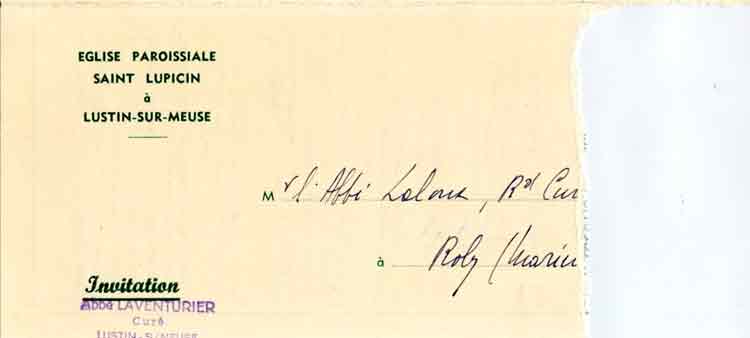 EGLISE PAROISSIALE
SAINT LUPICIN
à
LUSTIN-SUR-MEUSE
Mr l'Abbé Laloux, Rd Cur
à Roly (Marie
Invitation
Abbé LAVENTURIER
Curé
LUSTIN-S/MEUSE